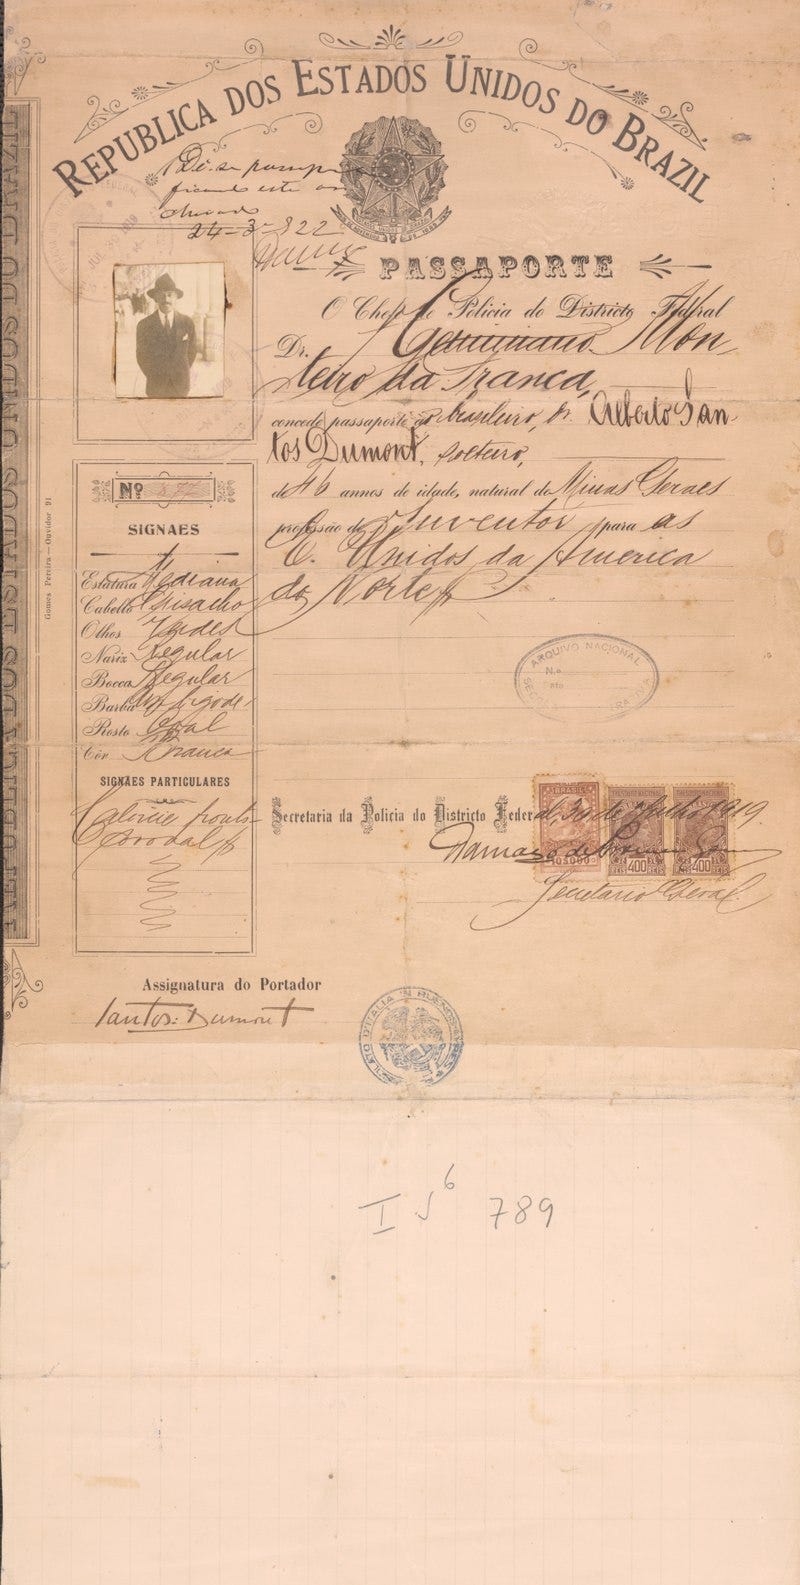 REPUBLICA DOS ESTADOS UNIDOS DO BRAZIL
24-3-922
PASSAPORTE
O Chefe de Policia do Districto Federal
Dr. Geminiano Mon-
teiro da Franca,
concede passaporte ao brasileiro, dr. Alberto San-
tos Dumont, solteiro,
de 46 annos de idade, natural de Minas Geraes
profissão de Inventor para as
E. Unidos da America
do Norte
Nº 577
SIGNAES
Estatura Mediana
Cabello Grisalho
Olhos Verdes
Nariz Regular
Bocca Regular
Barba
Rosto Oval
Côr Branca
SIGNAES PARTICULARES
Calvicie fronto
Gomes Pereira—Ouvidor 91
ARQUIVO NACIONAL
N.o
Secretaria da Policia do Districto Federal, 30 de Julho 1919.
BRASIL
10$000
THESOURO NACIONAL
400
REIS
THESOURO NACIONAL
400
REIS
Secretario Geral.
Assignatura do Portador
Santos=Dumont
D'ITALIA IN BUENOS AYRES
I J 6 789